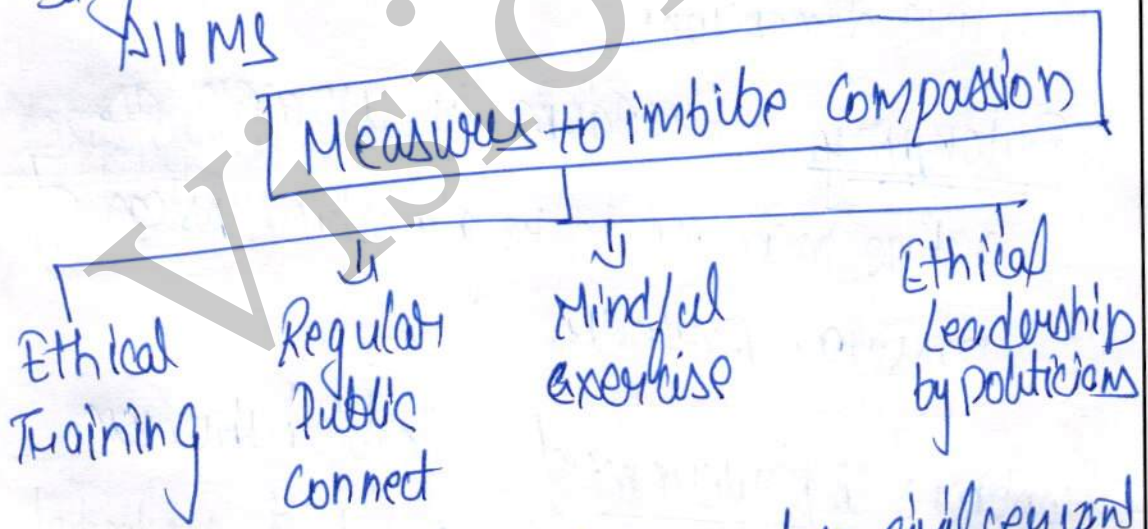 Measures to imbibe compassion
Ethical
Training
Regular
Public
connect
Mindful
exercise
Ethical
Leadership
by politicians
civil servant
Visio